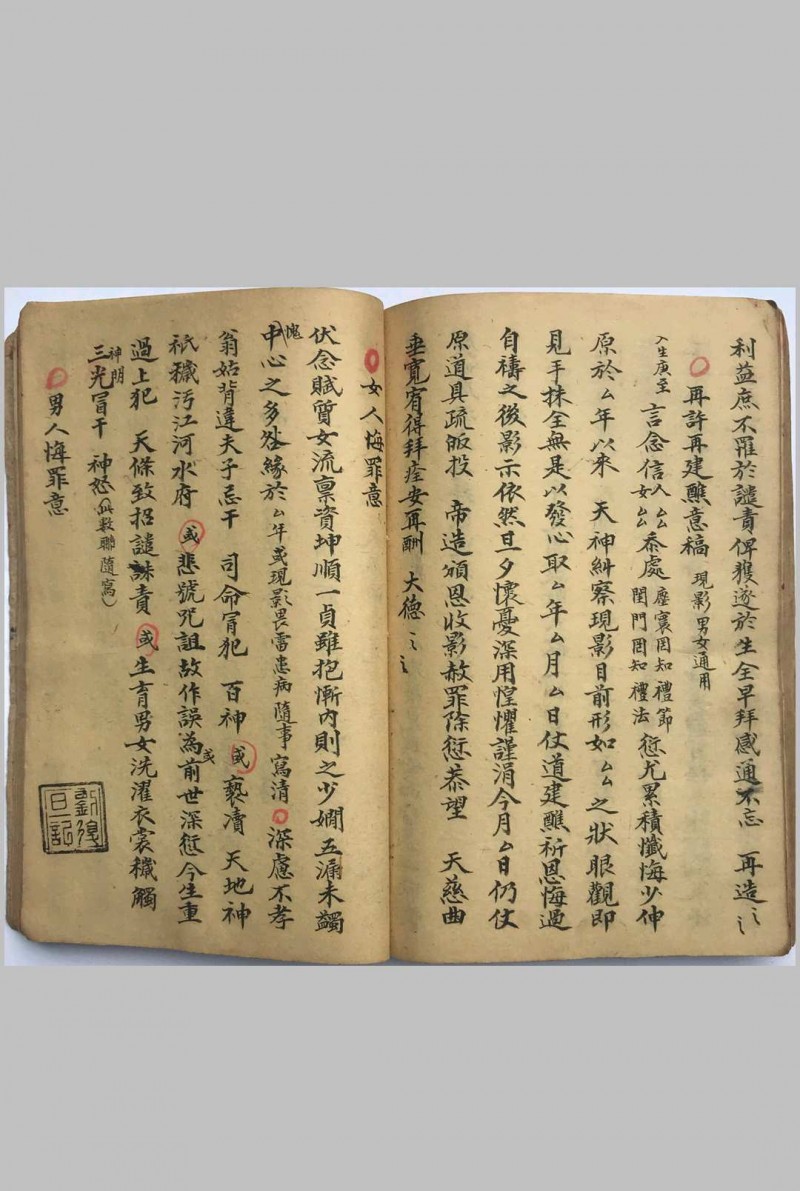 利益庶不罹於譴責俾獲遂於生全早拜感通不忘 再造〻
再許再建醮意稿 現影男女通用
入生庚至 言念信人厶厶 女厶厶 忝處 塵寰罔知禮節 閨門罔知禮法 愆尤累積懺悔少伸
原於厶年以來 天神糾察現影目前形如厶厶之狀眼觀即
見手抹全無是以發心取厶年厶月厶日仗道建醮祈恩悔過
自禱之後影示依然旦夕懷憂深用惶懼謹涓今月厶日仍仗
原道具疏皈投 帝造頒恩收影赦罪除愆恭望 天慈曲
垂寬宥得拜痊安再酬 大德〻
女人悔罪意
伏念賦質女流禀資坤順一貞雖抱慚內則之少嫻五漏未蠲
愧中心之多咎緣於厶年或現影畏雷患病隨事寫清 深慮不孝
翁姑背違夫子忌干 司命冒犯 百神 或褻瀆 天地神
祇穢污江河水府 或悲號咒詛故作誤為或前世深愆今生重
過上犯 天條致招譴誅責 或生育男女洗濯衣裳穢觸
三光冒干 神明 神怒 数聯隨寫
男人悔罪意